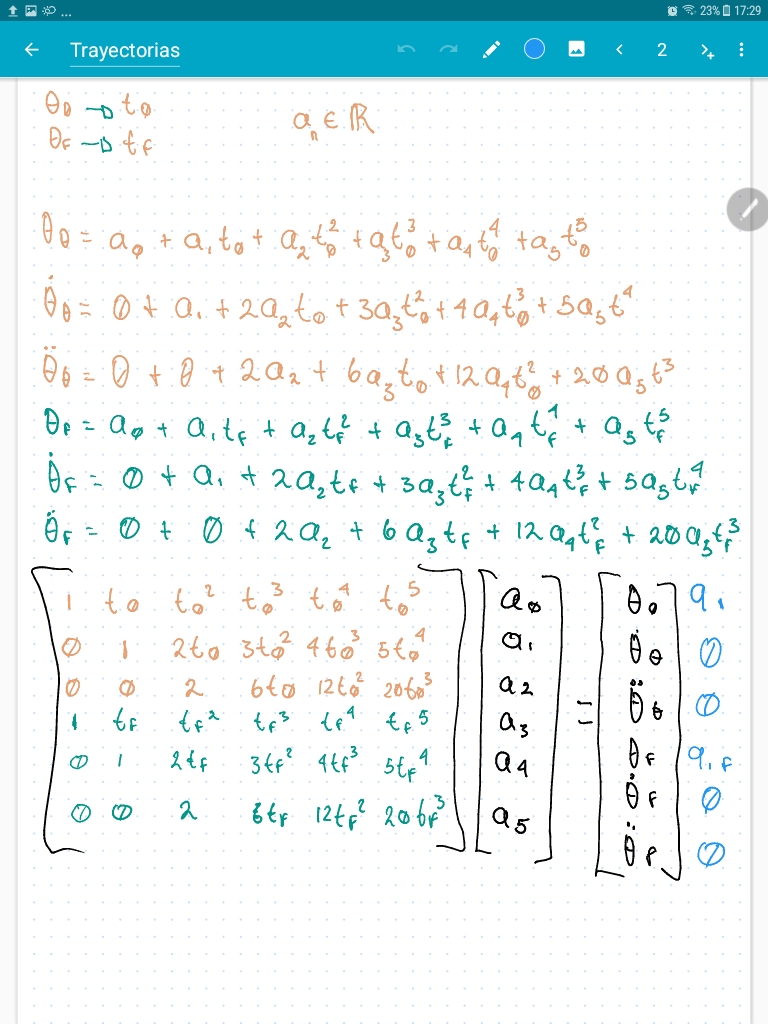 ... 23% 17:29
Trayectorias 2
θ₀ → t₀
θF → tF
aₙ ∈ ℝ
θ₀ = a₀ + a₁t₀ + a₂t₀² + a₃t₀³ + a₄t₀⁴ + a₅t₀⁵
θ̇₀ = 0 + a₁ + 2a₂t₀ + 3a₃t₀² + 4a₄t₀³ + 5a₅t⁴
θ̈₀ = 0 + 0 + 2a₂ + 6a₃t₀ + 12a₄t₀² + 20a₅t³
θF = a₀ + a₁tF + a₂tF² + a₃tF³ + a₄tF⁴ + a₅tF⁵
θ̇F = 0 + a₁ + 2a₂tF + 3a₃tF² + 4a₄tF³ + 5a₅tF⁴
θ̈F = 0 + 0 + 2a₂ + 6a₃tF + 12a₄tF² + 20a₅tF³
1 t₀ t₀² t₀³ t₀⁴ t₀⁵ a₀ θ₀ q₁
0 1 2t₀ 3t₀² 4t₀³ 5t₀⁴ a₁ θ̇₀ 0
0 0 2 6t₀ 12t₀² 20t₀³ a₂ = θ̈₀ 0
1 tF tF² tF³ tF⁴ tF⁵ a₃ θF q₁F
0 1 2tF 3tF² 4tF³ 5tF⁴ a₄ θ̇F 0
0 0 2 6tF 12tF² 20tF³ a₅ θ̈F 0